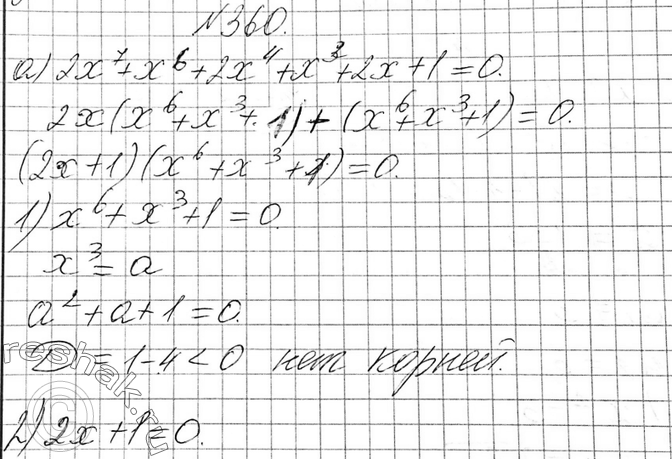 №360.
а) 2x⁷+x⁶+2x⁴+x³+2x+1=0.
2x(x⁶+x³+1)+(x⁶+x³+1)=0.
(2x+1)(x⁶+x³+1)=0.
1) x⁶+x³+1=0.
x³=a
a²+a+1=0.
D=1-4<0 нет корней.
2) 2x+1=0.
reshak.ru